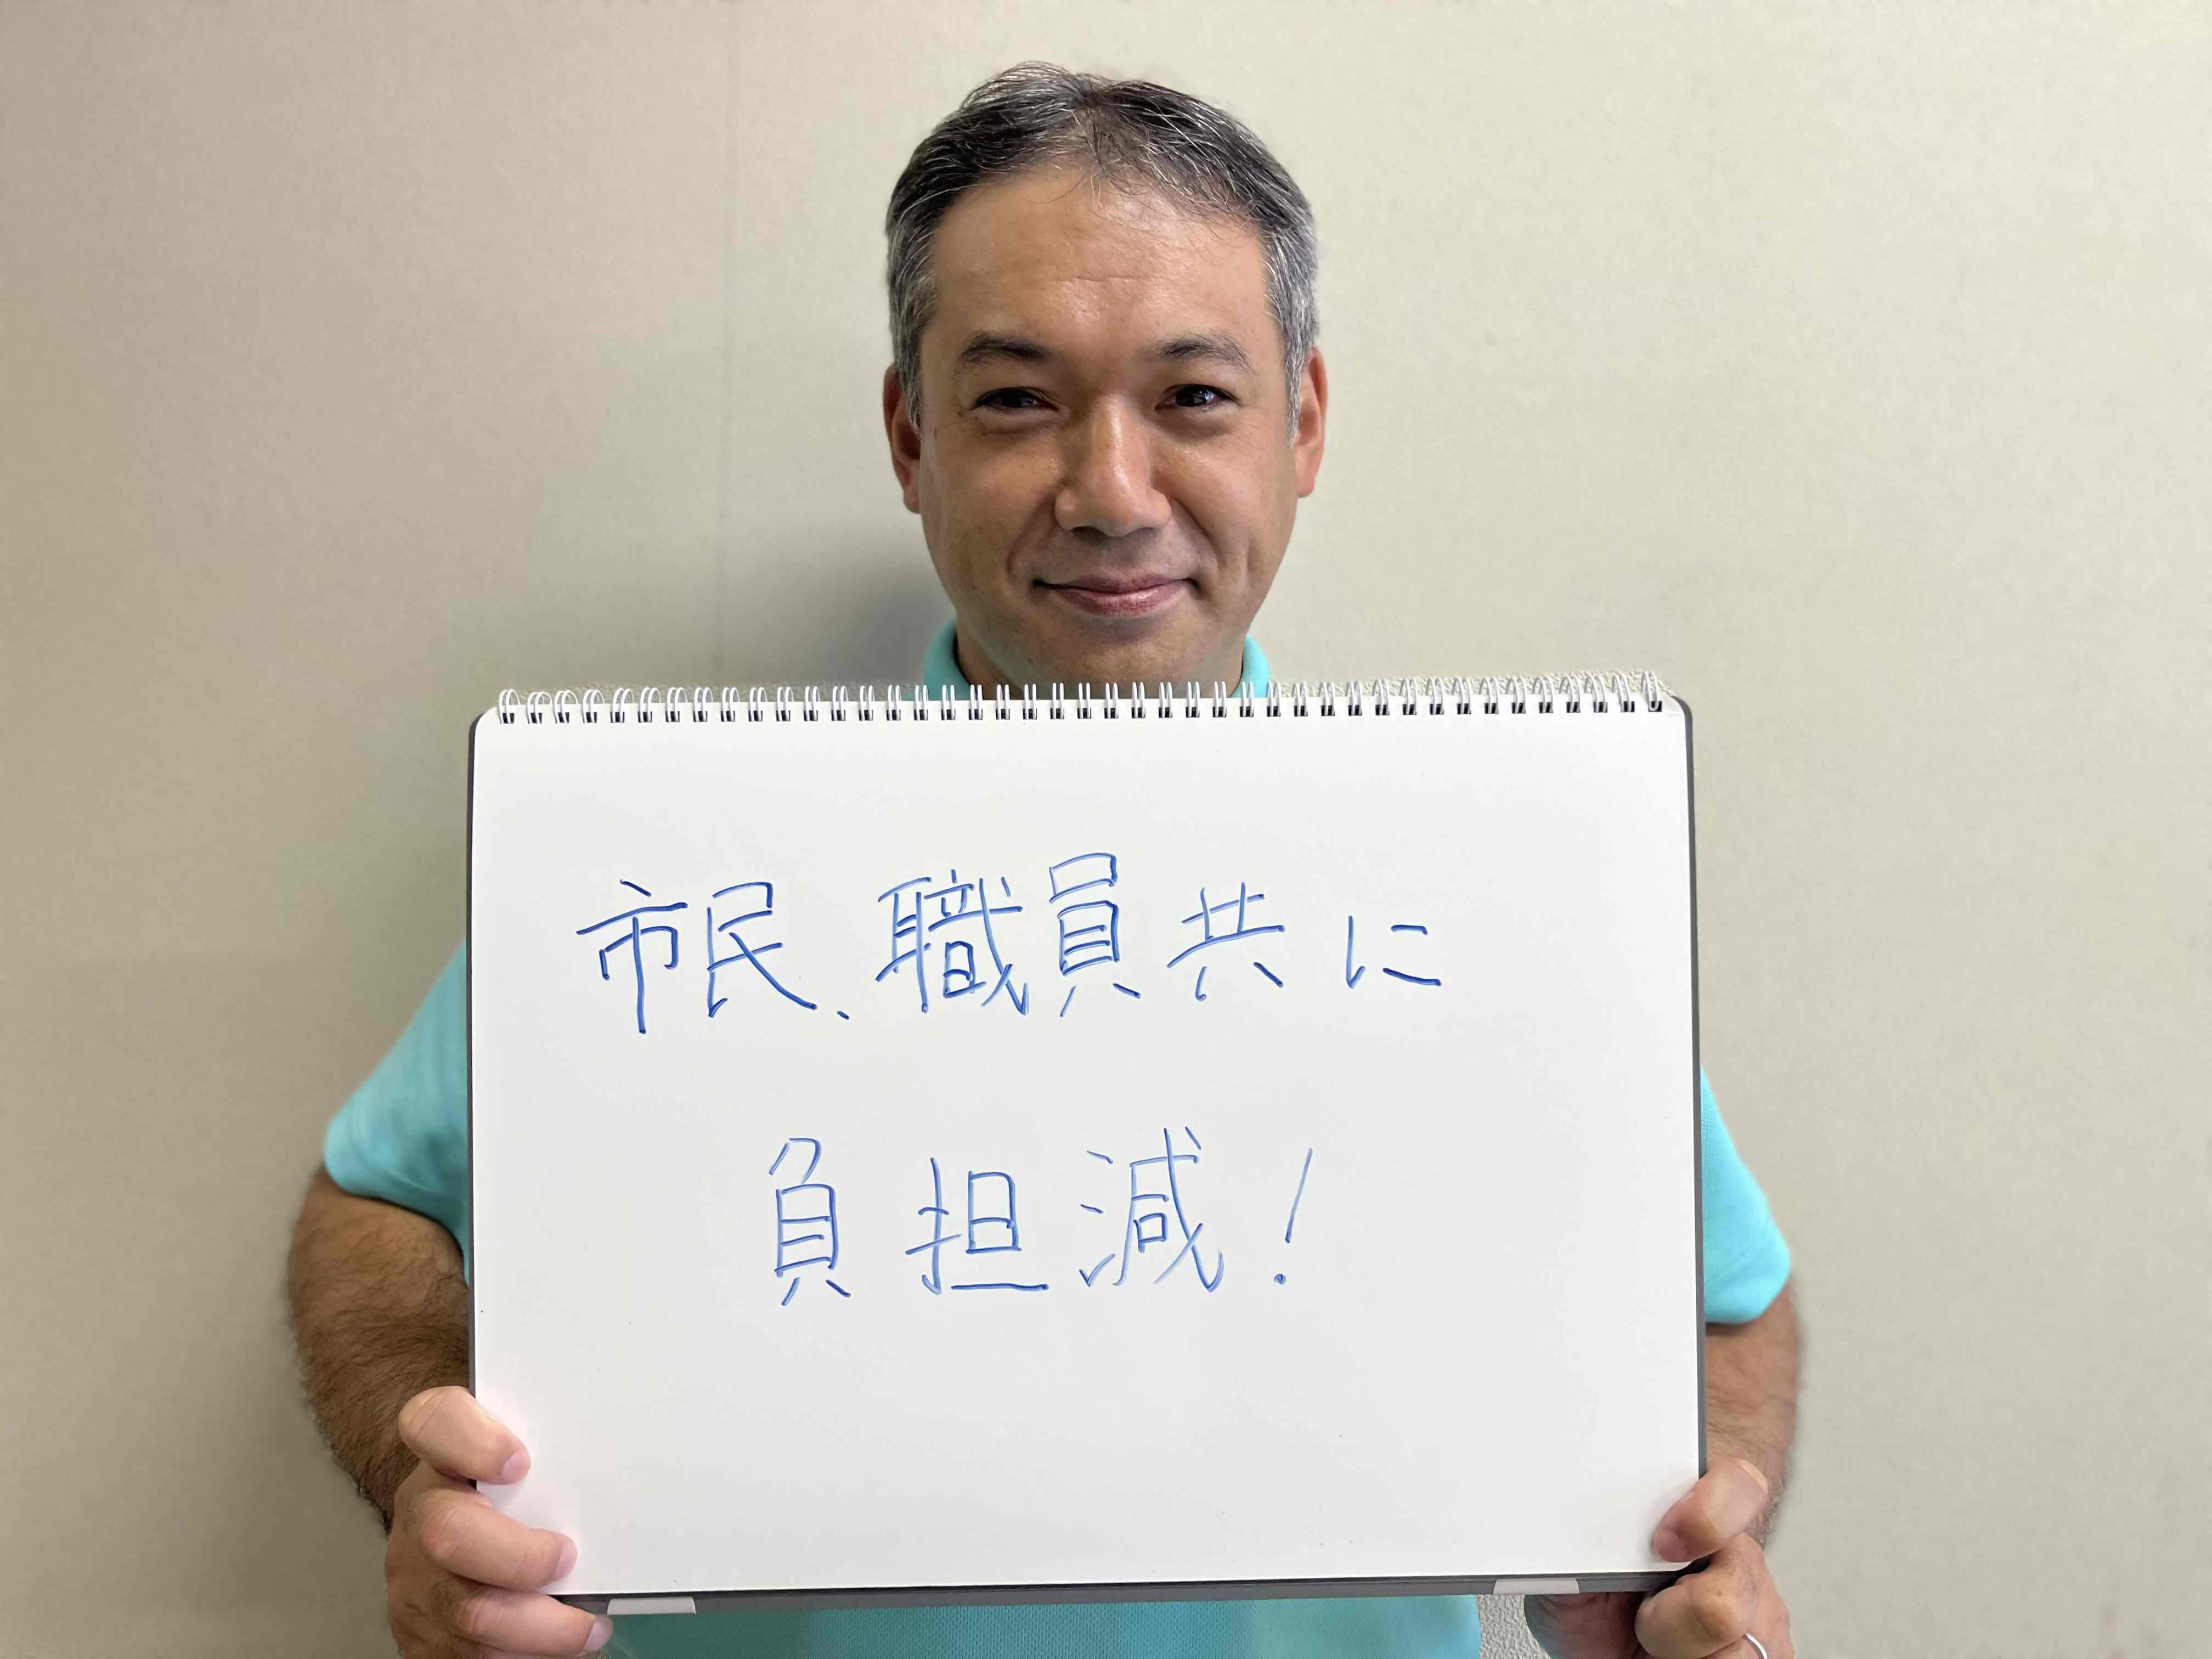 市民、職員共に
負担減!